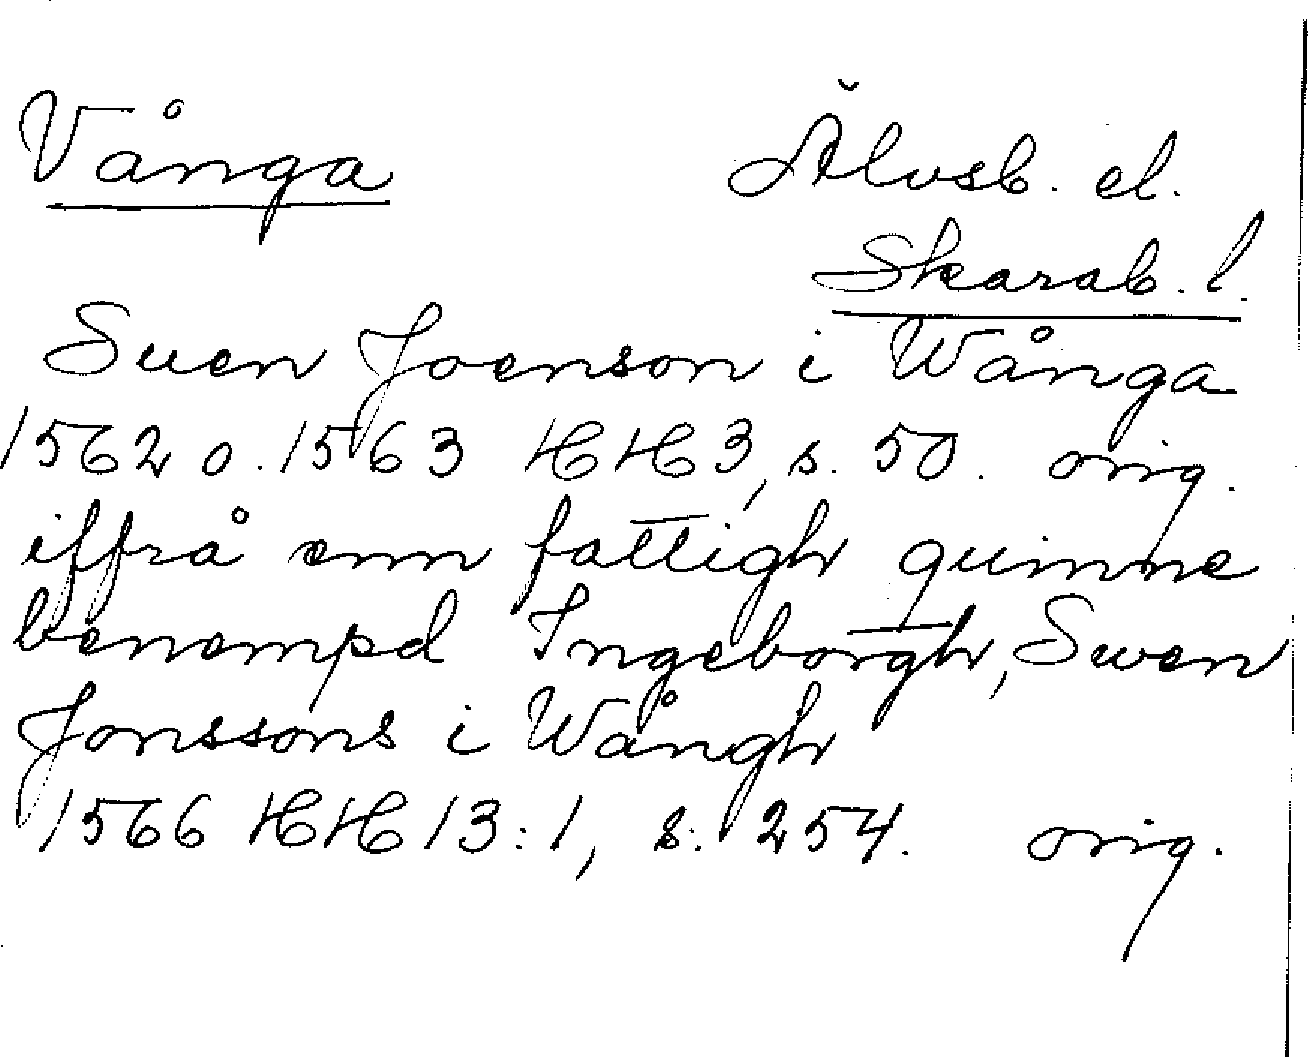 Vånga Älvsb. el.
Skarab. l.
Suen Joenson i Wånga
1562 o. 1563 HH 3, s. 50. orig.
iffrå enn fattigh quinne
benempd Ingeborgh, Swen
Jonssons i Wångh
1566 HH 13:1, s. 254. orig.